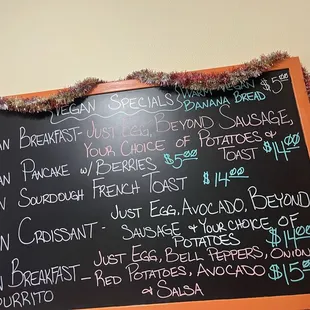 VEGAN SPECIALS
WARM VEGAN BANANA BREAD $5.00
AN BREAKFAST - JUST EGG, BEYOND SAUSAGE,
YOUR CHOICE OF POTATOES &
TOAST $14.00
AN PANCAKE W/ BERRIES $5.00
AN SOURDOUGH FRENCH TOAST $14.00
AN CROISSANT - JUST EGG, AVOCADO, BEYOND
SAUSAGE & YOUR CHOICE OF
POTATOES $14.00
AN BREAKFAST - JUST EGG, BELL PEPPERS, ONION
BURRITO RED POTATOES, AVOCADO
& SALSA $15.00